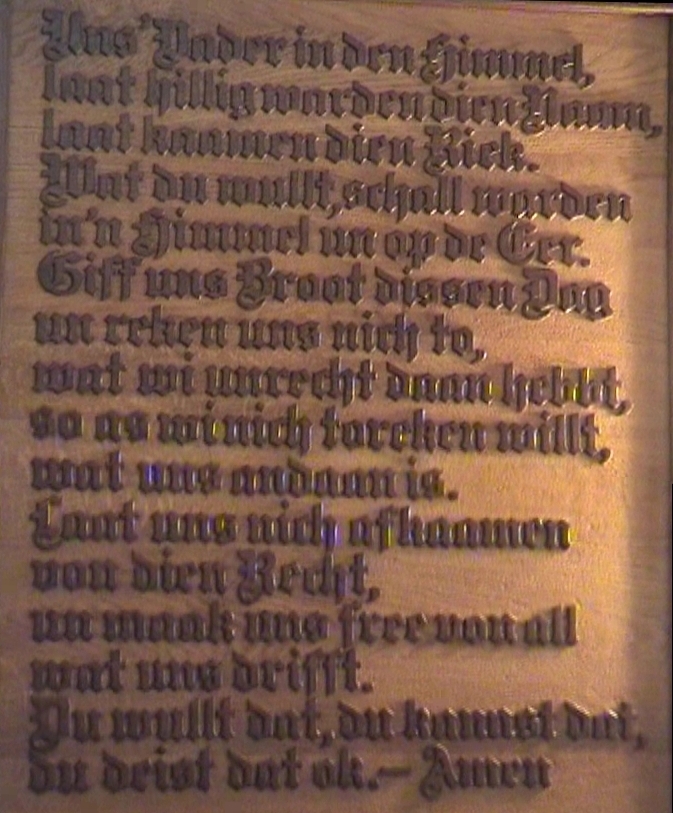 Uns' Vader in den Himmel,
laat hillig warden dien Naam,
laat kaamen dien Riek.
Wat du wullt, schall warden
in'n Himmel un op de Eer.
Giff uns Broot dissen Dag
un reken uns nich to,
wat wi unrecht daan hebbt,
so as wi nich toreken willt,
wat uns andaan is.
Laat uns nich afkaamen
von dien Recht,
un maak uns free von all
wat uns drifft.
Du wullt dat, du kannst dat,
du deist dat ok.— Amen